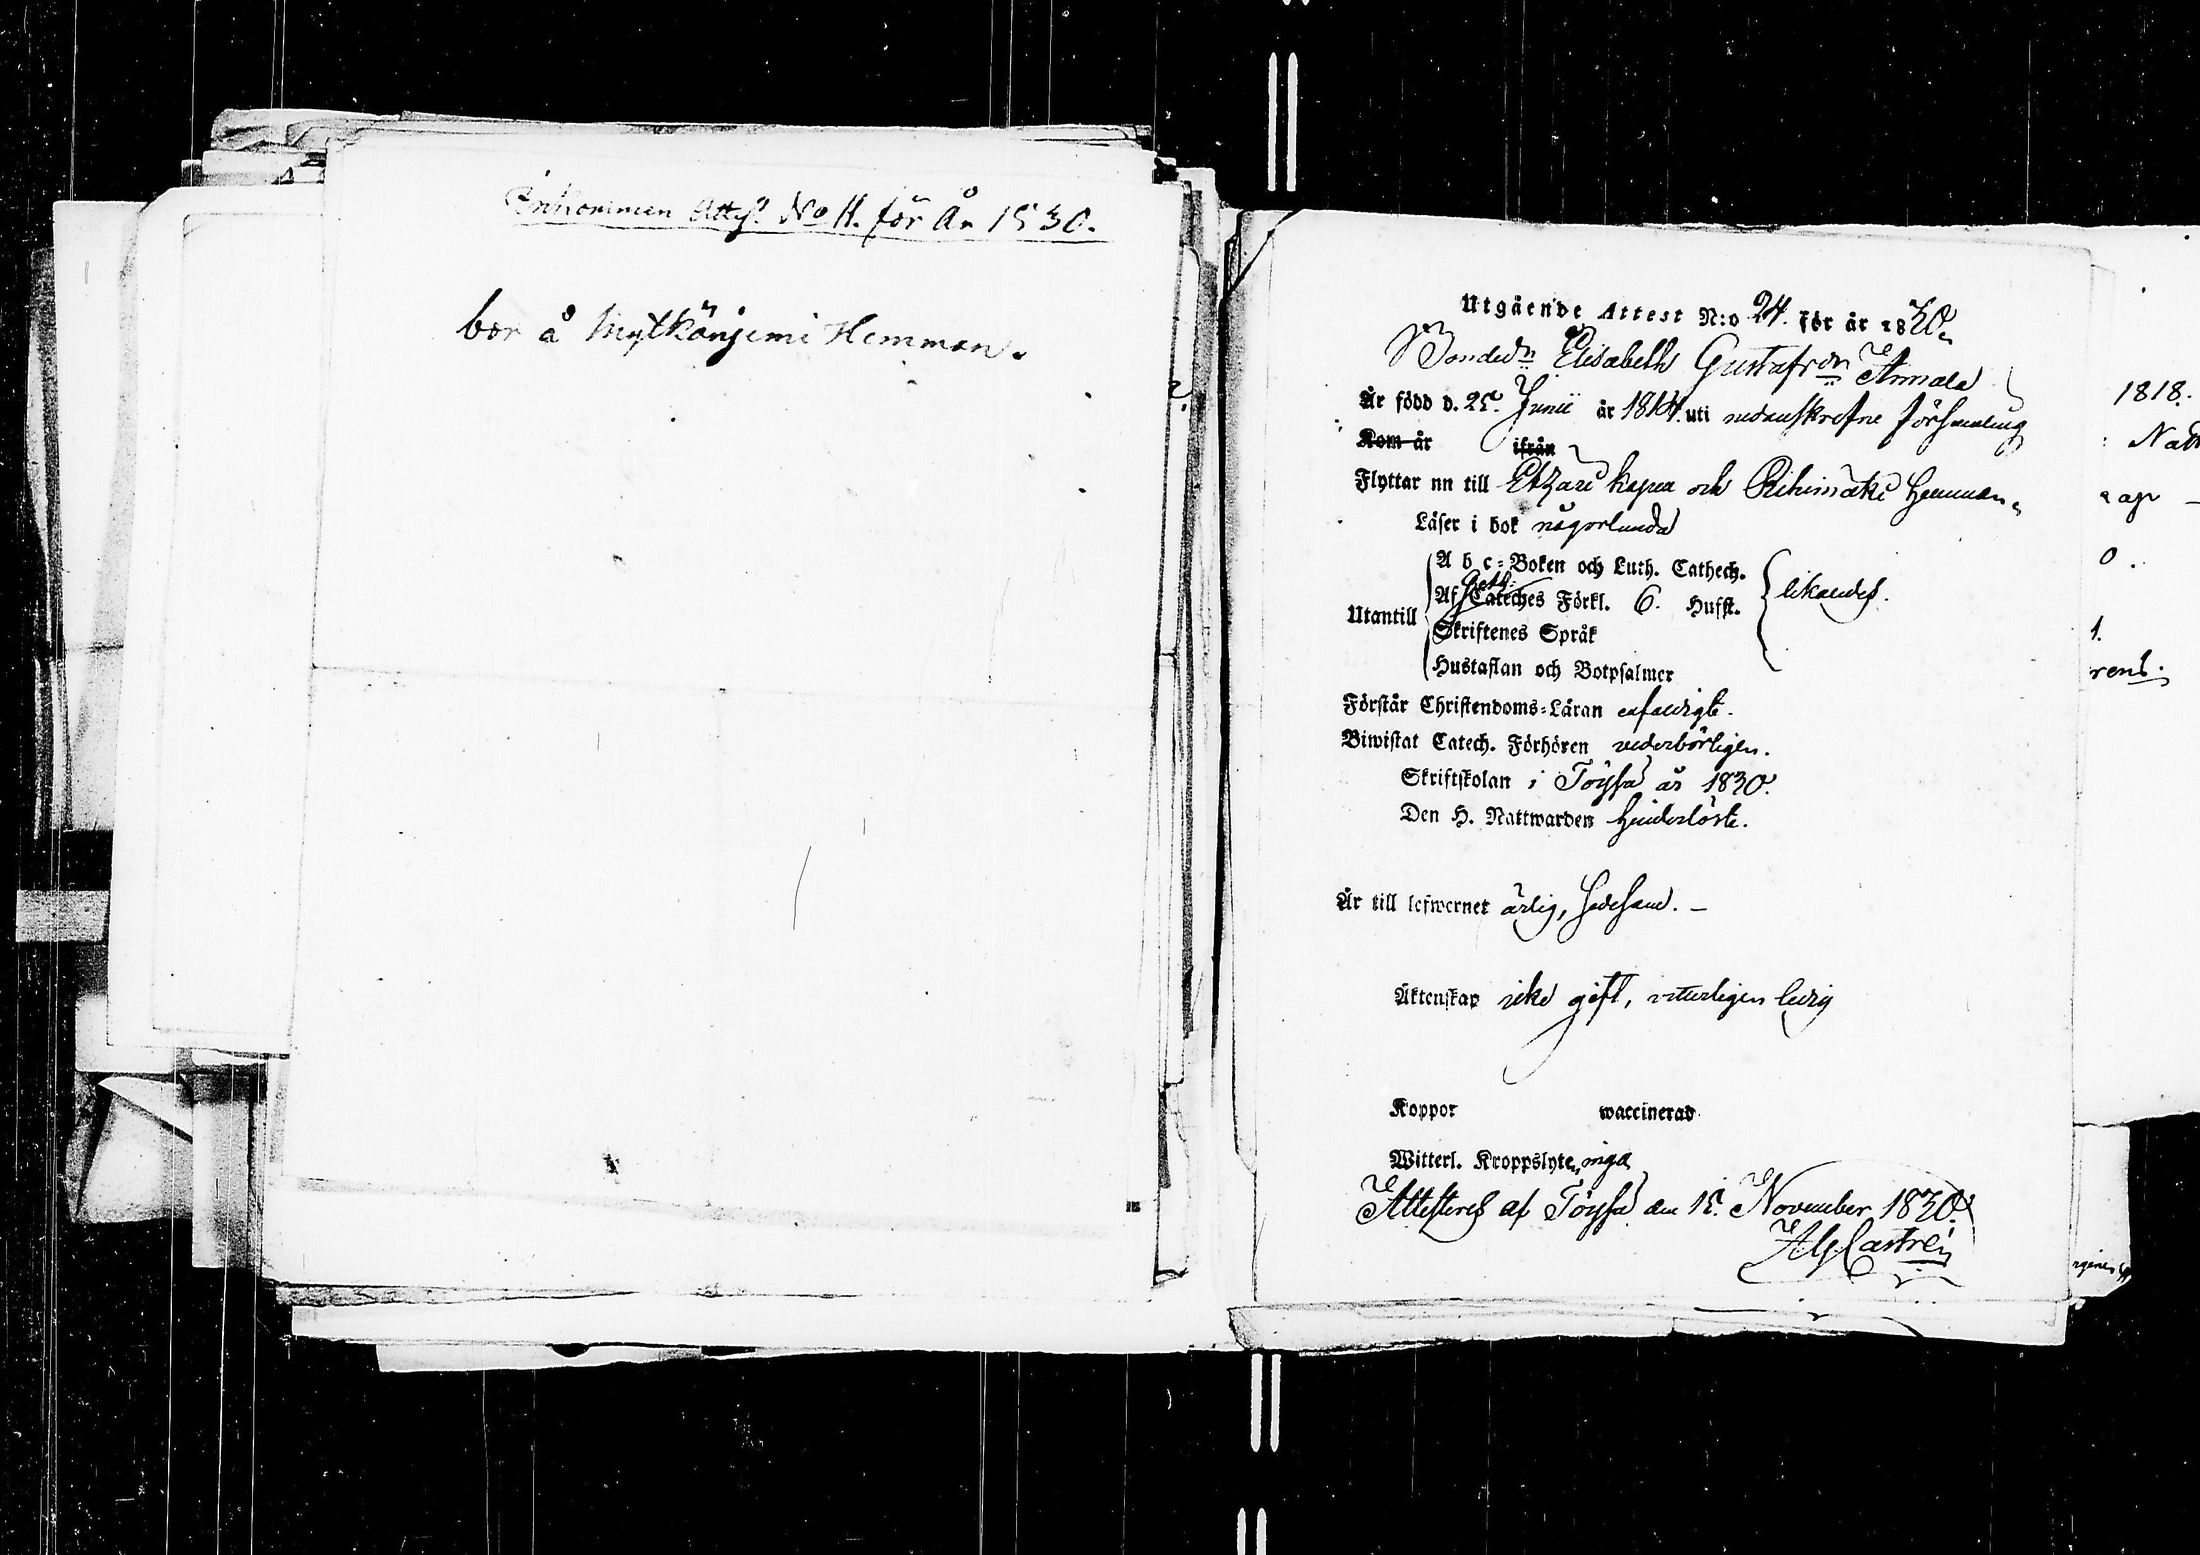 Inkommen Attest No 11. för År 1830.
bor å Mytkänjemi Hemman.
Utgående Attest N:o 24. för år 1830.
Bonded:n Elisabeth Gustafsdn Annala
Är född d. 25. Junii år 1814. uti nedanskrefne församling
Kom år ifrån
Flyttar nu till Etzäri kapell och Riihimäki hemman.
Läser i bok någorlunda
A b c-Boken och Luth. Cathech.
Af Cateches Förkl. 6. Hufst. likaledes.
Utantill
Skriftenes Språk
Hustaflan och Botpsalmer
Förstår Christendoms-Läran enfaldigt.
Biwistat Catech. Förhören vederbörligen.
Skriftskolan i Töysä år 1830.
Den H. Nattwarden hinderlöst.
Är till lefwernet ärlig, sedesam. –
Äktenskap icke gift, vitterligen ledig
Koppor waccinerad
Witterl. Kroppslyte, inga
Attesteras af Töysä den 15. November 1830.
Castrén
1818.
Natt
ap –
0.
1.
rens.